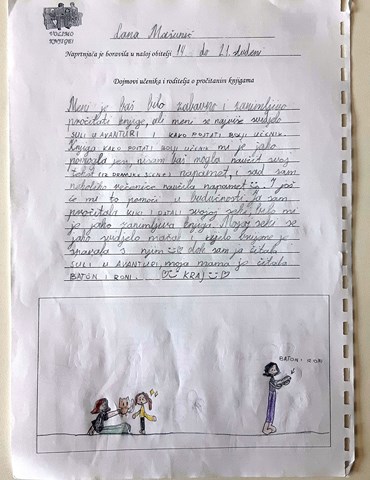 VOLIMO
KNJIGE!
Lana
Naprtnjača je boravila u našoj obitelji 14. do 21. studeni
Dojmovi učenika i roditelja o pročitanim knjigama
Meni je baš bilo zabavno i zanimljivo
pročitati knjige, ali meni se najviše svidjelo
SULI U AVANTURI I KAKO POSTATI BOLJI UČENIK.
Knjiga KAKO POSTATI BOLJI UČENIK mi je jako
pomogla jer nisam baš mogla naučit svoj
tekst napamet, i sad sam
nekoliko rečenica naučila napamet I još
će mi to pomoći u budućnosti. Ja sam
pročitala svojoj seki, bila mi
je jako zanimljiva knjiga. Mojoj seki se
jako svidjelo i cijelo vrijeme je
spavala s njim dok sam ja čitala
SULI U AVANTURI, moja mama je čitala
BATON I RONI. KRAJ
BATON I RONI